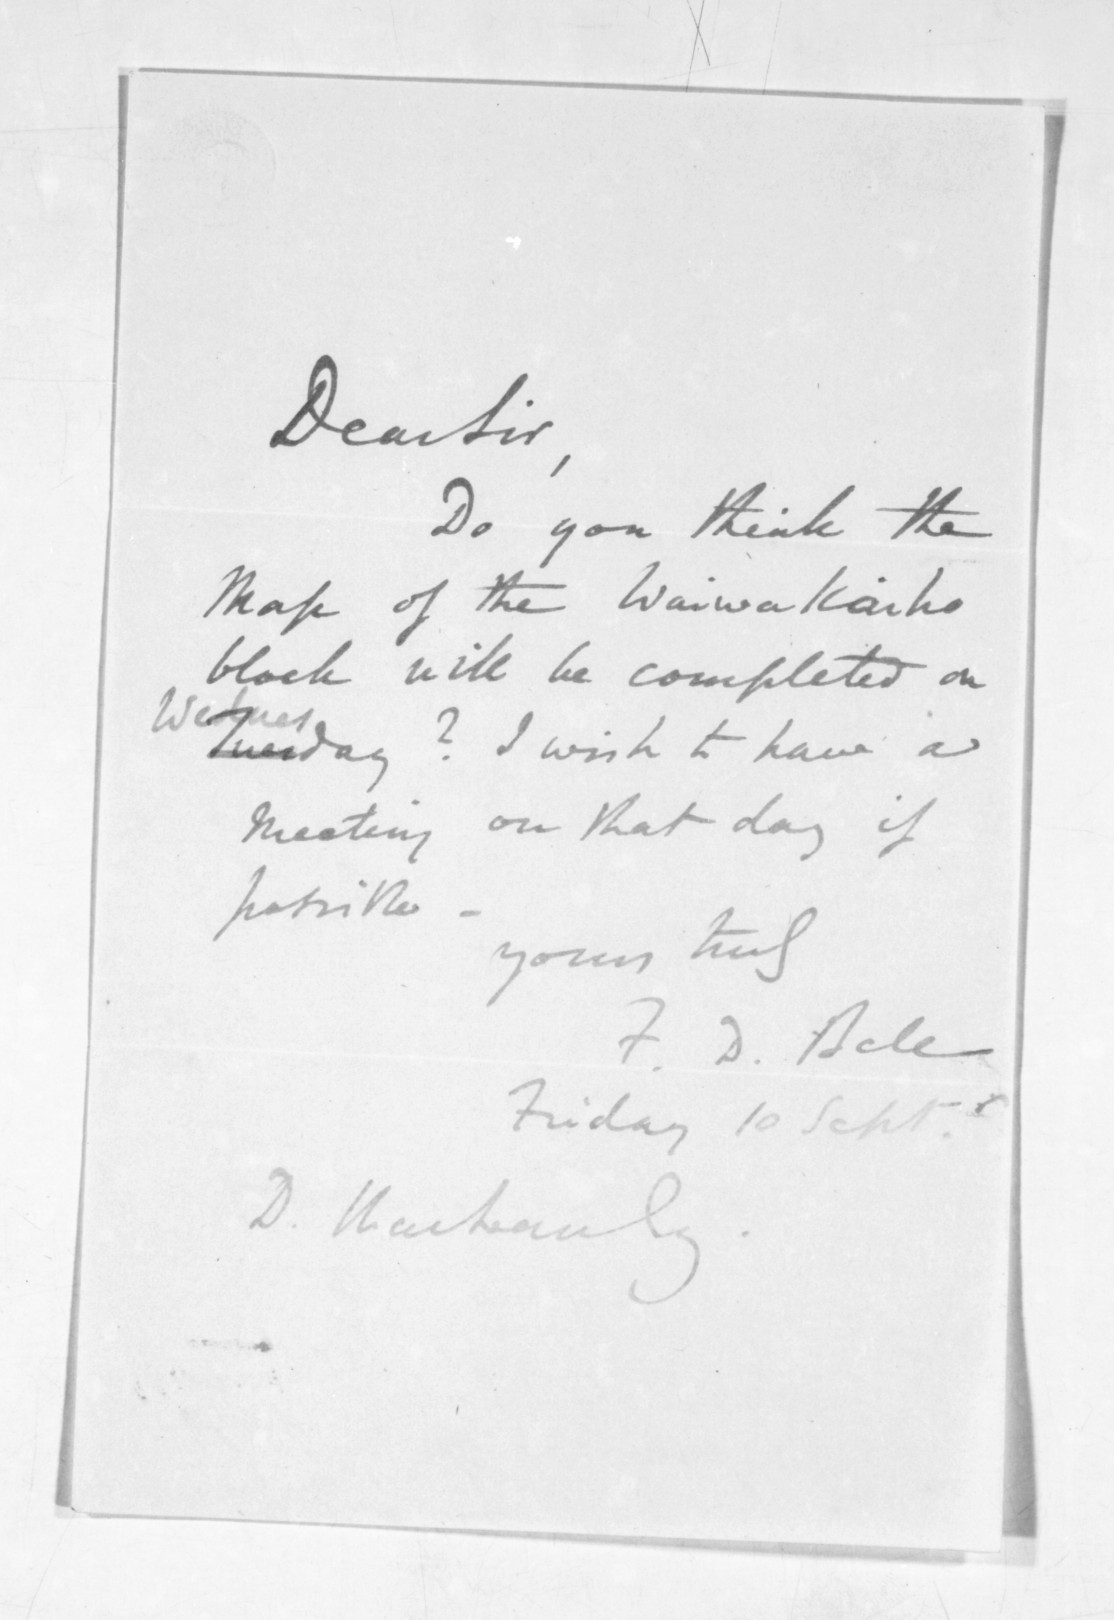 Dear Sir,
Do you think the
Map of the Waiwakaiho
block will be completed on
Wednes
Tuesday? I wish to have a
meeting on that day if
possible -
yours truly
F. D. Bell
Friday 10 Sept.r
D.